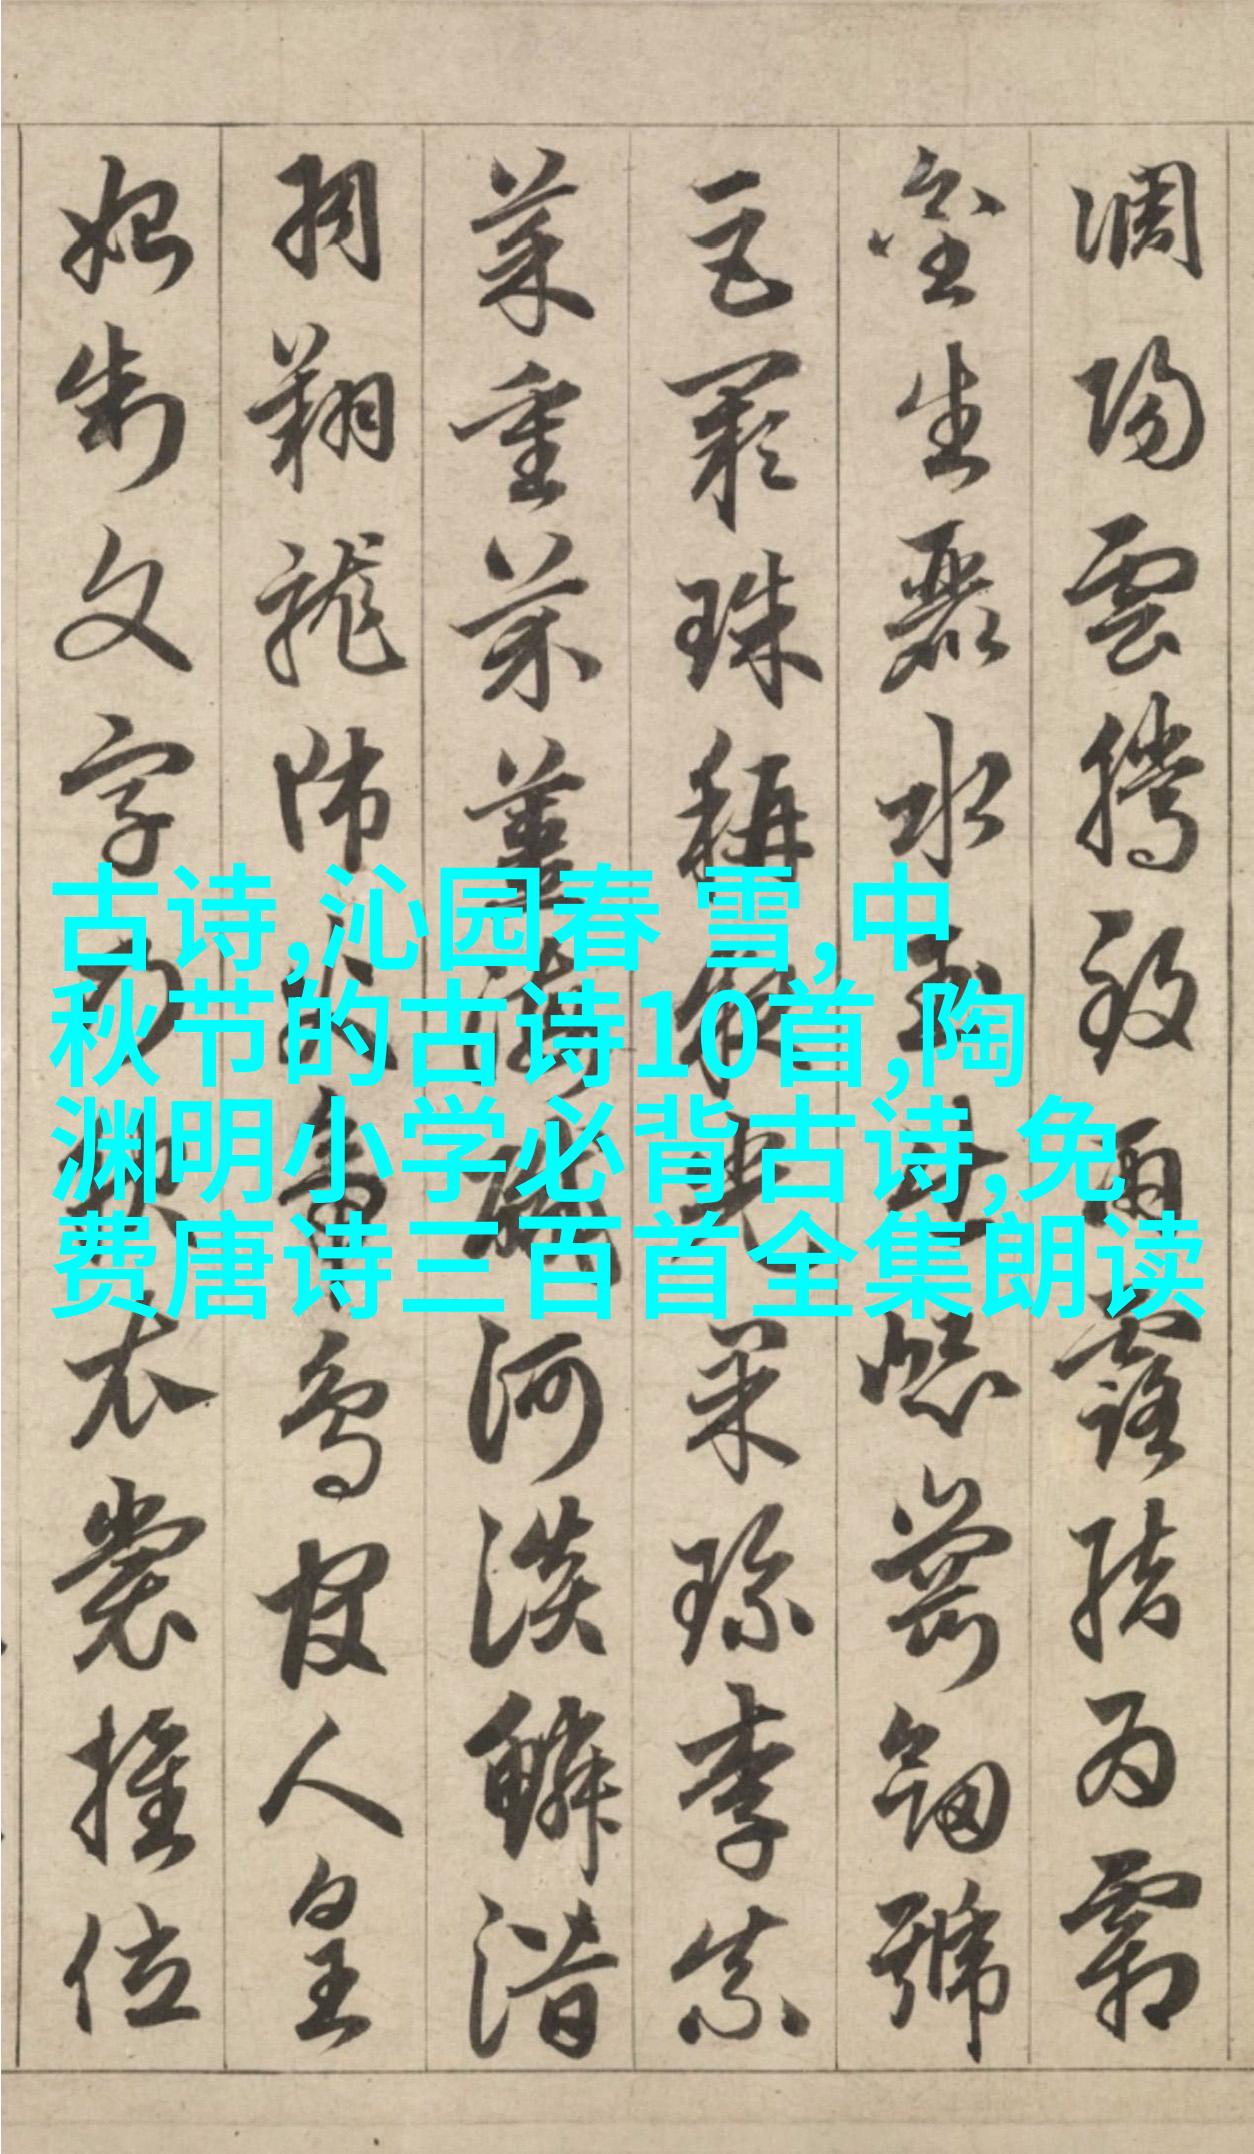 調陽雲騰致雨露結為霜
金生麗水玉出崑崗劍號
巨闕珠稱夜光果珍李柰
菜重芥薑海鹹河淡鱗潛
羽翔龍師火帝鳥官人皇
始制文字乃服衣裳推位
古诗,沁园春 雪,中
秋节的古诗10首,陶
渊明小学必背古诗,免
费唐诗三百首全集朗读